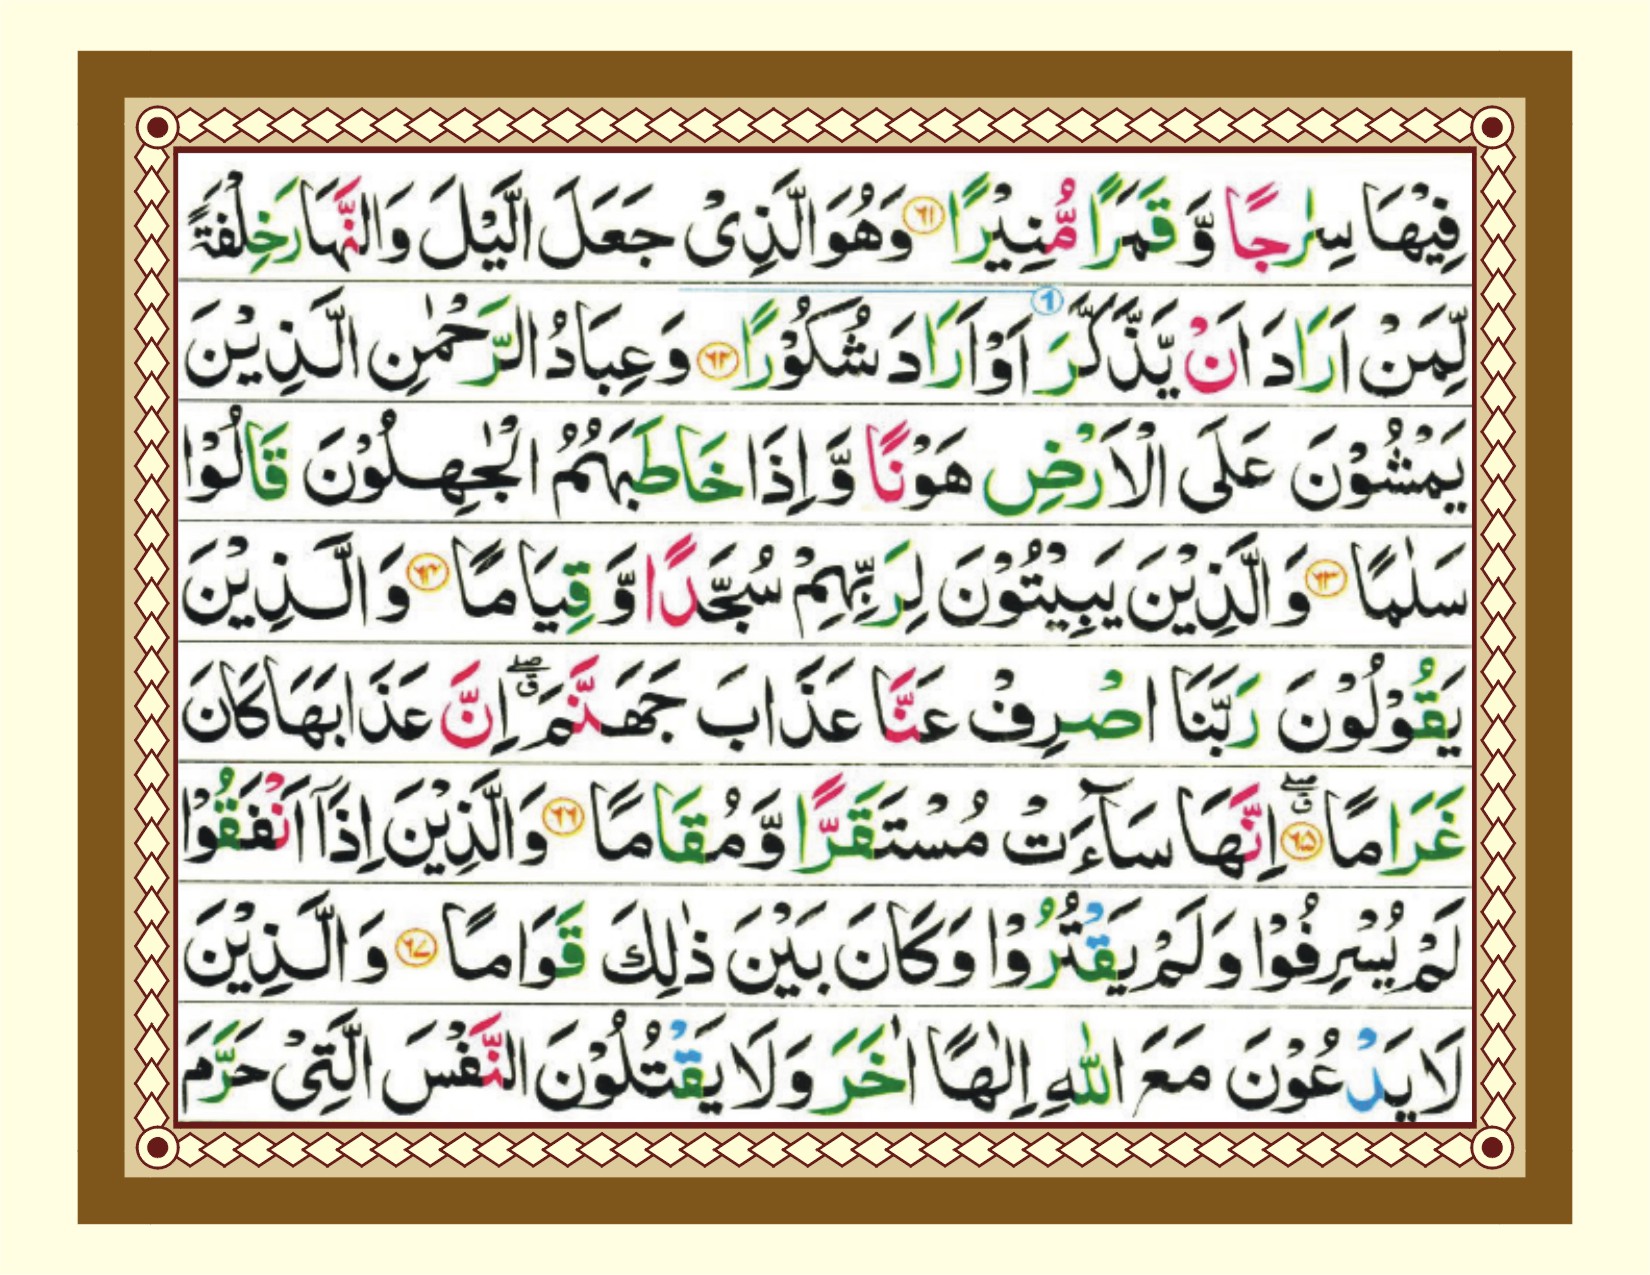 فِيْهَا سِرٰجًا وَّ قَمَرًا مُّنِيْرًا ۝٦١ وَهُوَ الَّذِىْ جَعَلَ الَّيْلَ وَالنَّهَارَ خِلْفَةً
لِّمَنْ اَرَادَ اَنْ يَّذَّكَّرَ اَوْ اَرَادَ شُكُوْرًا ۝٦٢ وَعِبَادُ الرَّحْمٰنِ الَّذِيْنَ
يَمْشُوْنَ عَلَى الْاَرْضِ هَوْنًا وَّ اِذَا خَاطَبَهُمُ الْجٰهِلُوْنَ قَالُوْا
سَلٰمًا ۝٦٣ وَالَّذِيْنَ يَبِيْتُوْنَ لِرَبِّهِمْ سُجَّدًا وَّ قِيَامًا ۝٦٤ وَالَّذِيْنَ
يَقُوْلُوْنَ رَبَّنَا اصْرِفْ عَنَّا عَذَابَ جَهَنَّمَ ۖق اِنَّ عَذَابَهَا كَانَ
غَرَامًا ۝٦٥ ۖق اِنَّهَا سَآءَتْ مُسْتَقَرًّا وَّ مُقَامًا ۝٦٦ وَالَّذِيْنَ اِذَآ اَنْفَقُوْا
لَمْ يُسْرِفُوْا وَلَمْ يَقْتُرُوْا وَكَانَ بَيْنَ ذٰلِكَ قَوَامًا ۝٦٧ وَالَّذِيْنَ
لَا يَدْعُوْنَ مَعَ اللّٰهِ اِلٰهًا اٰخَرَ وَلَا يَقْتُلُوْنَ النَّفْسَ الَّتِىْ حَرَّمَ